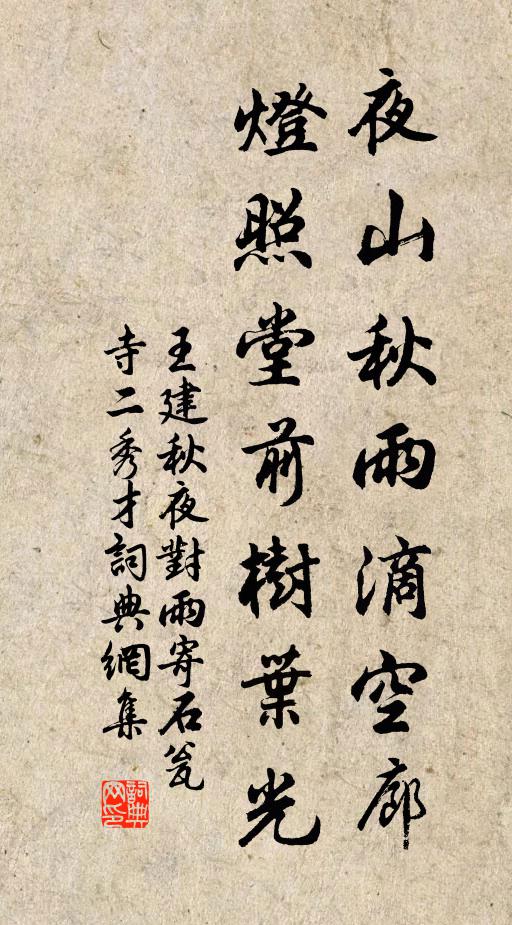 夜山秋雨滴空廊
燈照堂前樹葉光
王建秋夜對雨寄石瓮
寺二秀才詞典網集
詞典
网印